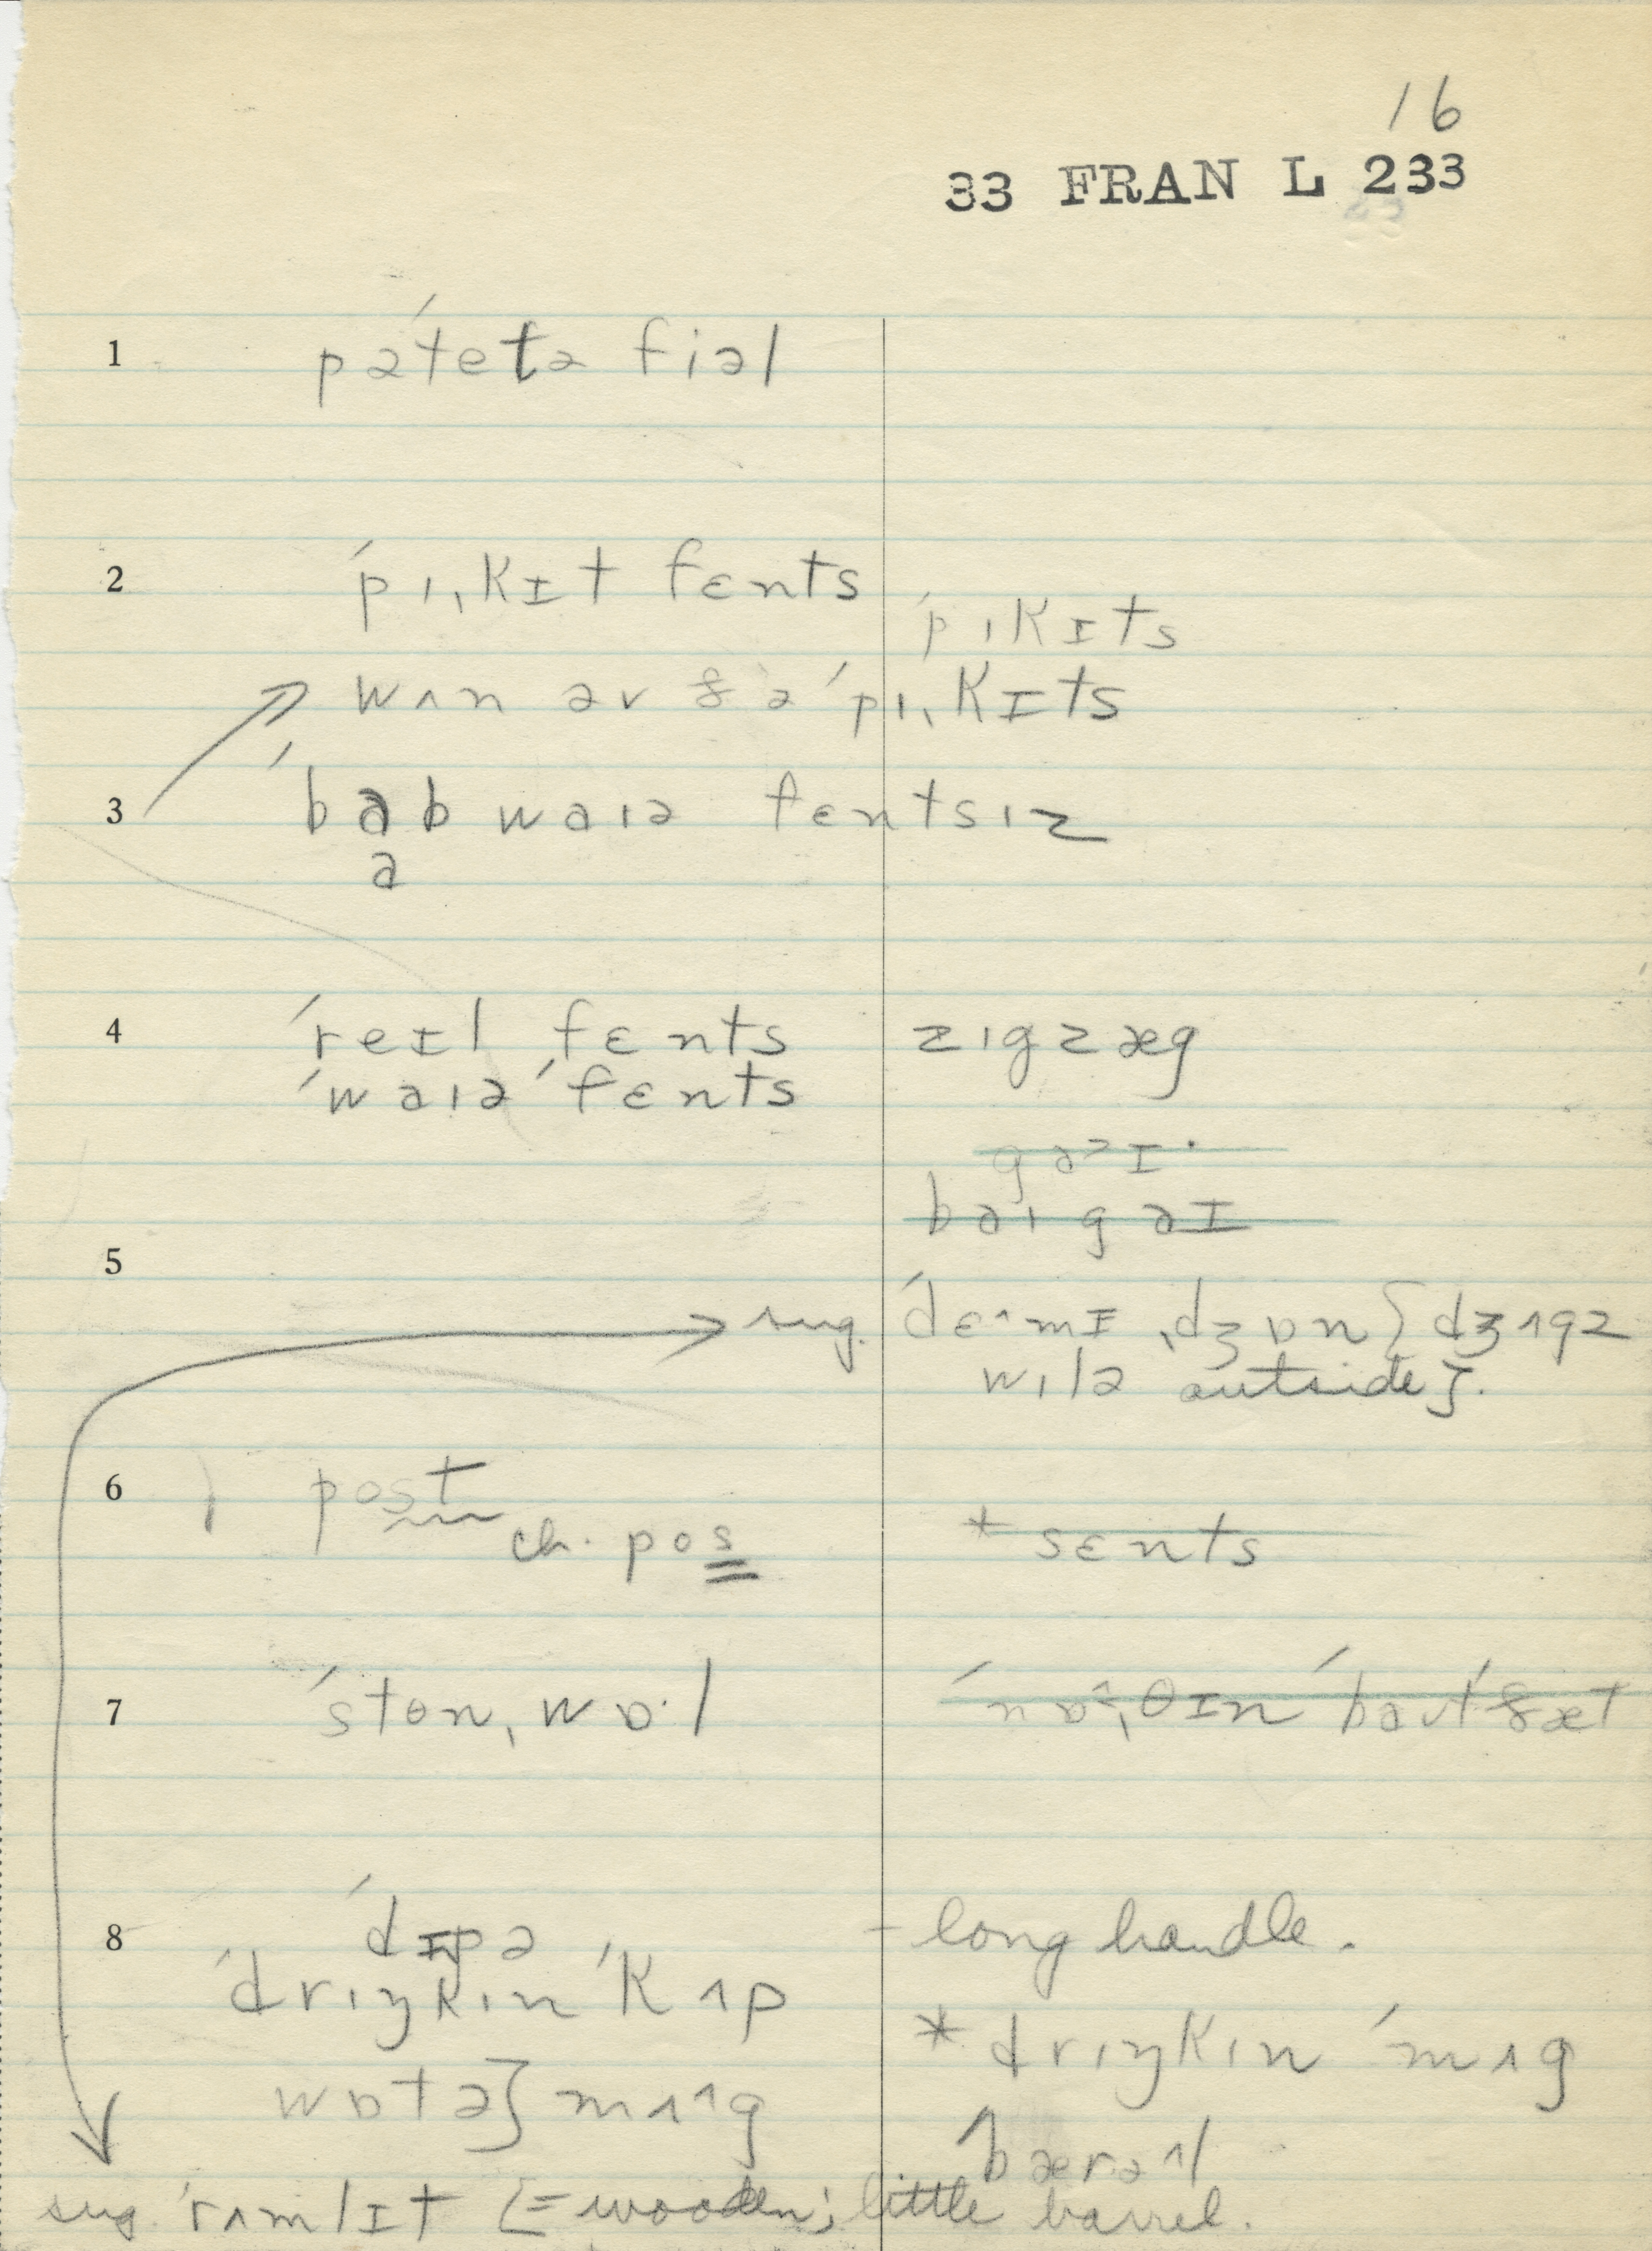 16
33 FRAN L 233
1 pə́tetə fiəl
2 ́pɪˌkɪt fɛnts
́pɪkɪts
wʌn əv ðə ́pɪˌkɪts
3 ́bab waɪə fɛntsɪz
a
4 ́reɪl fɛnts zɪgzæg
́waɪə ́fɛnts
5
sug. ́dɛ^mɪ ˌdʒɒn [dʒʌgz
wɪlə outside].
6 post
ch. pos * sɛnts
7 ́stonˌwɒ·l
8 ́dɪpə - long handle.
́drɪŋkɪn ́kʌp
* drɪŋkɪn ́mʌg
wɒtə] mʌ^g
́bærə^l
sug. ́rʌmlɪt [= wooden; little barrel.